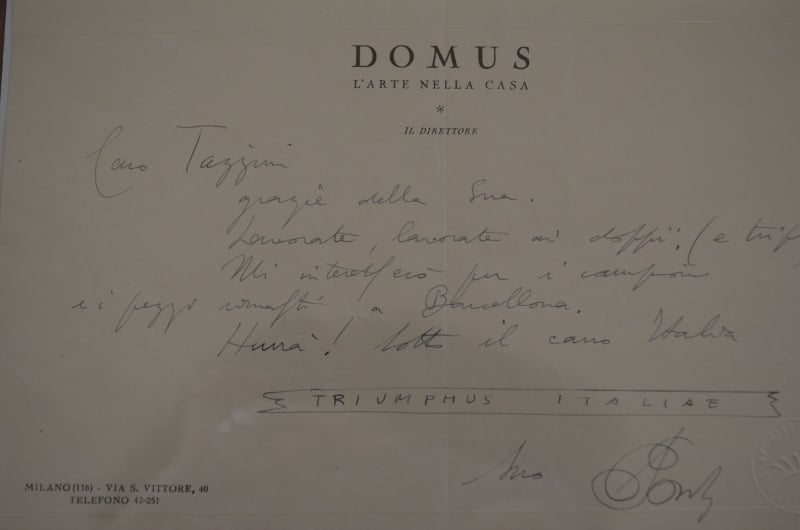 DOMUS
L'ARTE NELLA CASA
*
IL DIRETTORE
Caro Tazzini
grazie della Sua.
Lavorate, lavorate ai doppi! (e
Mi interesserò per i campioni
e i pezzi rimasti a Barcellona.
Hurrà! sotto il caro Italia
TRIUMPHUS ITALIAE
Suo
MILANO (116) - VIA S. VITTORE, 40
TELEFONO 42-251